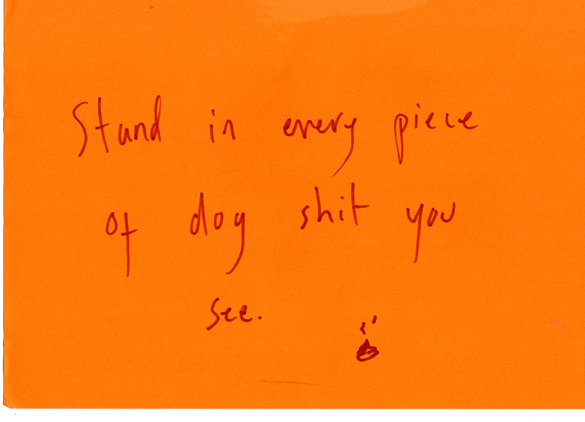 Stand in every piece
of dog shit you
see.